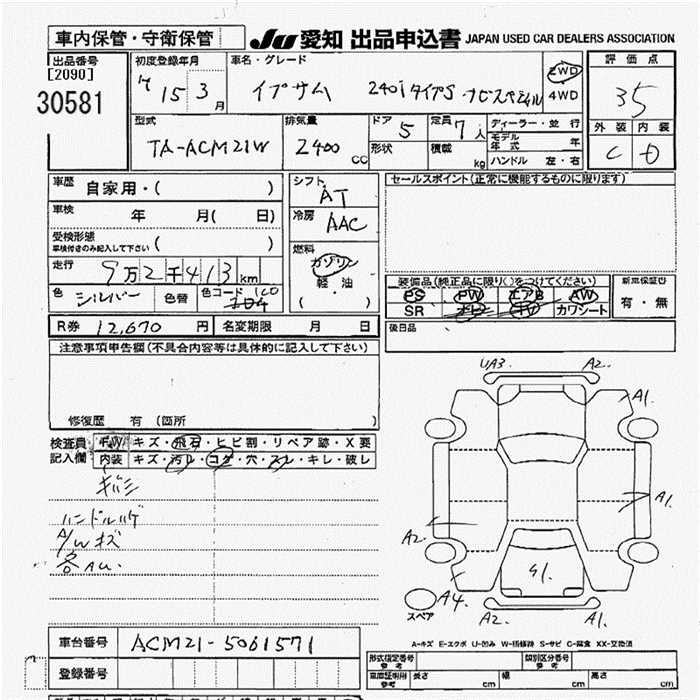 車内保管・守衛保管
JU 愛知 出品申込書 JAPAN USED CAR DEALERS ASSOCIATION
出品番号
[2090]
30581
初度登録年月
15 3 月
車名・グレード
イプサム 240i タイプS
2WD
4WD
評価点
35
外装 内装
C D
型式
TA-ACM21W
排気量
2400 CC
ドア 5
形状
定員 7 人
積載 kg
ディーラー・並行
モデル年式 年
ハンドル 左・右
車歴 自家用・( )
車検 年 月( 日)
受検形態
車検付きのみ記入して下さい ( )
走行 9万2千413 km
色 シルバー 色替 色コード 1C0
シフト AT
冷房 AAC
燃料
ガソリン
軽・油
( )
セールスポイント(正常に機能するものに限ります)
装備品(純正品に限り○をつけてください)
PS PW エアB AW
SR ナビ TV カワシート
新車保証書
有・無
R券 12,670 円 名変期限 月 日
後日品
注意事項申告欄(不具合内容等は具体的に記入して下さい)
修復歴 有 (箇所 )
検査員記入欄
FW キズ・飛石・ヒビ割・リペア跡・X要
内装 キズ・汚レ・コゲ・穴・スレ・キレ・破レ
ハンドルハゲ
A/Wキズ
各AU.
UA3. A2.
A1.
A1.
A2.
S1.
A4.
A2. A1.
スペア
A-キズ E-エクボ U-凹み W-補修跡 S-サビ C-腐食 XX-交換済
車台番号 ACM21-5061571
登録番号
形式指定番号
参考
類別区分番号
参考
車庫証明用
参考
長さ cm 幅 cm 高さ cm